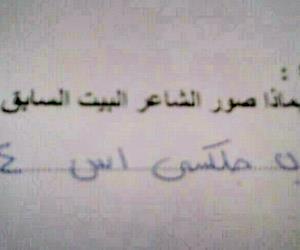 :
بماذا صور الشاعر البيت السابق
جلكسي اس ٤